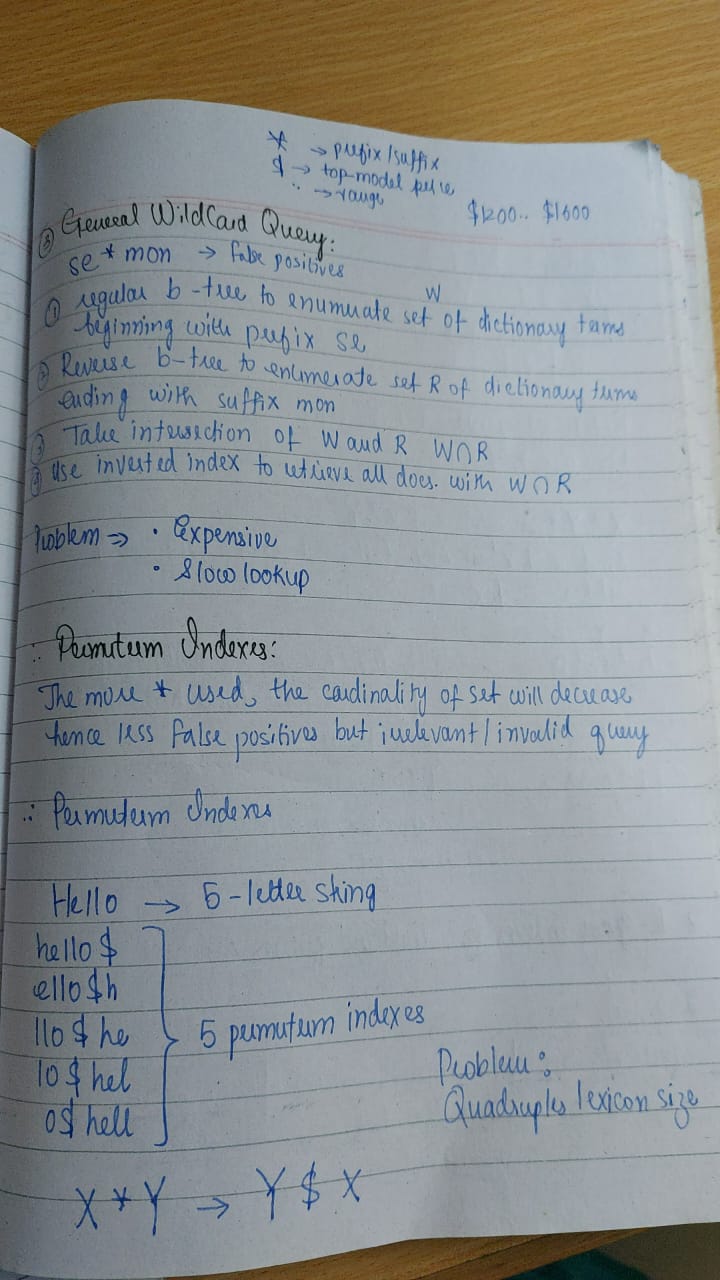 * → prefix/suffix
$ → top-model price
.. → range
$1200.. $1600
③ General WildCard Query:
se * mon → false positives
① regular b-tree to enumerate set W of dictionary terms
beginning with prefix se
② Reverse b-tree to enumerate set R of dictionary terms
ending with suffix mon
③ Take intersection of W and R W∩R
④ Use inverted index to retrieve all docs. with W∩R
Problem ⇒ • Expensive
• Slow lookup
∴ Permuterm Indexes:
The more * used, the cardinality of set will decrease
hence less false positives but irrelevant/invalid query
∴ Permuterm Indexes
Hello → 5-letter string
hello$
ello$h
llo$he
lo$hel
o$hell
5 permuterm indexes
Problem:
Quadruples lexicon size
X*Y → Y$X